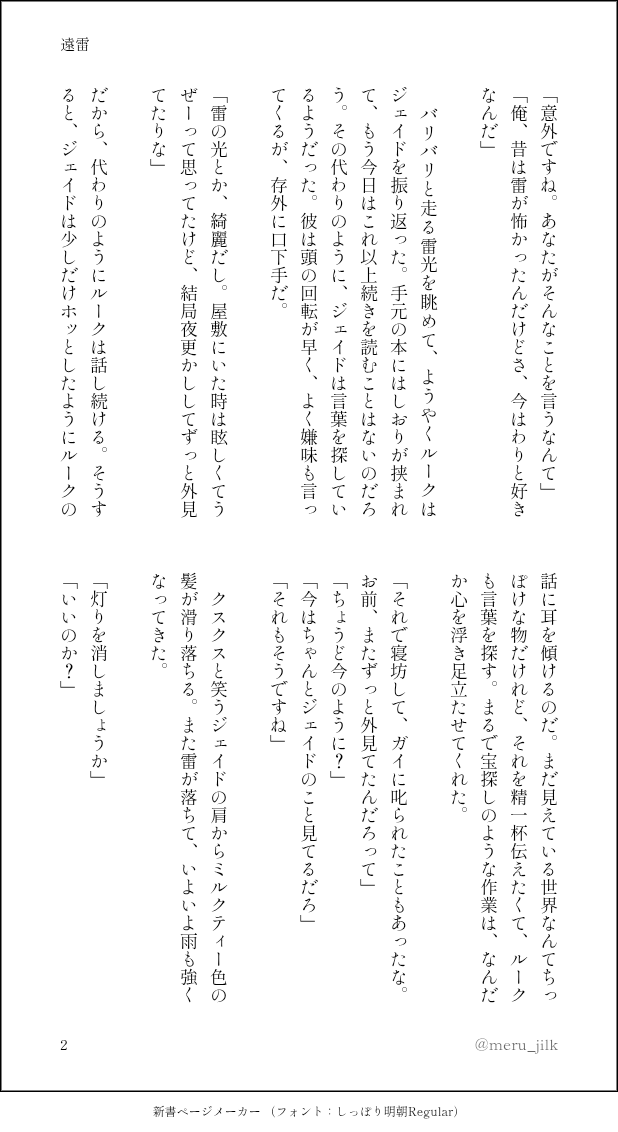 遠雷
「意外ですね。あなたがそんなことを言うなんて」
「俺、昔は雷が怖かったんだけどさ、今はわりと好き
なんだ」
バリバリと走る雷光を眺めて、ようやくルークは
ジェイドを振り返った。手元の本にはしおりが挟まれ
て、もう今日はこれ以上続きを読むことはないのだろ
う。その代わりのように、ジェイドは言葉を探してい
るようだった。彼は頭の回転が早く、よく嫌味も言っ
てくるが、存外に口下手だ。
「雷の光とか、綺麗だし。屋敷にいた時は眩しくてう
ぜーって思ってたけど、結局夜更かししてずっと外見
てたりな」
だから、代わりのようにルークは話し続ける。そうす
ると、ジェイドは少しだけホッとしたようにルークの
話に耳を傾けるのだ。まだ見えている世界なんてちっ
ぽけな物だけれど、それを精一杯伝えたくて、ルーク
も言葉を探す。まるで宝探しのような作業は、なんだ
か心を浮き足立たせてくれた。
「それで寝坊して、ガイに叱られたこともあったな。
お前、またずっと外見てたんだろって」
「ちょうど今のように？」
「今はちゃんとジェイドのこと見てるだろ」
「それもそうですね」
クスクスと笑うジェイドの肩からミルクティー色の
髪が滑り落ちる。また雷が落ちて、いよいよ雨も強く
なってきた。
「灯りを消しましょうか」
「いいのか？」
2
@meru_jilk
新書ページメーカー（フォント：しっぽり明朝Regular）